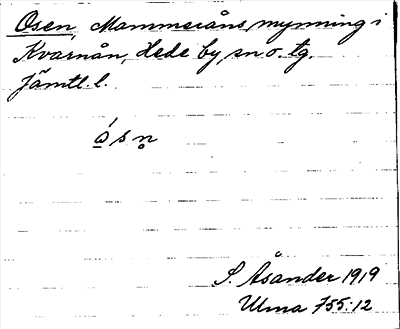 Osen, Mammeråns mynning i
Kvarnån, Hede by, sn o. tg.
Jämtl. l.
ó̲ s n̥
S. Åsander 1919
Ulma 755:12